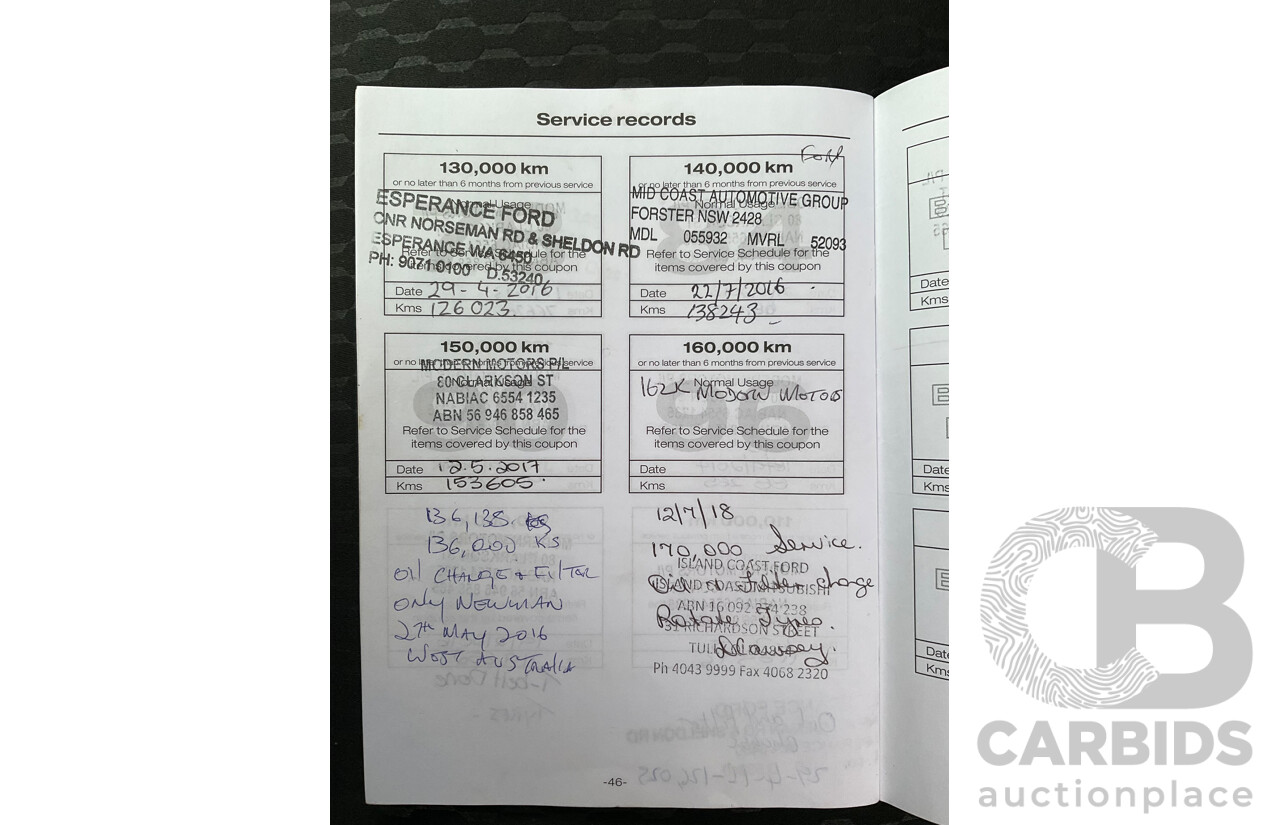 Service records
130,000 km
or no later than 6 months from previous service
Normal Usage
ESPERANCE FORD
CNR NORSEMAN RD & SHELDON RD
ESPERANCE WA 6450
PH: 9071 0100 D.53240
Refer to Service Schedule for the
items covered by this coupon
Date 29-4-2016
Kms 126 023
Ford
140,000 km
or no later than 6 months from previous service
Normal Usage
MID COAST AUTOMOTIVE GROUP
FORSTER NSW 2428
MDL 055932 MVRL 52093
Refer to Service Schedule for the
items covered by this coupon
Date 22/7/2016
Kms 138243
150,000 km
or no later than 6 months from previous service
MODERN MOTORS P/L
Normal Usage
80 CLARKSON ST
NABIAC 6554 1235
ABN 56 946 858 465
Refer to Service Schedule for the
items covered by this coupon
Date 12.5.2017
Kms 153605
160,000 km
or no later than 6 months from previous service
Normal Usage
162K MODERN MOTORS
Refer to Service Schedule for the
items covered by this coupon
Date
Kms
136,138
136,000 KS
OIL CHANGE & FILTER
ONLY NEWMAN
27TH MAY 2016
WEST AUSTRALIA
12/7/18
170,000 Service.
ISLAND COAST FORD
Oil & filter change
ISLAND COAST MITSUBISHI
ABN 16 092 234 238
Rotate Tyres.
RICHARDSON STREET
Ph 4043 9999 Fax 4068 2320
-46-
Date
Kms
Date
Kms
Date
Kms
CARBIDS
auctionplace